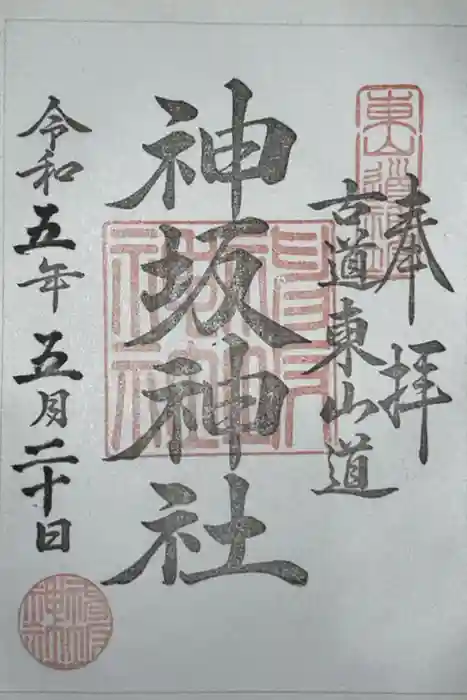 奉拝
古道東山道
神坂神社
令和五年五月二十日